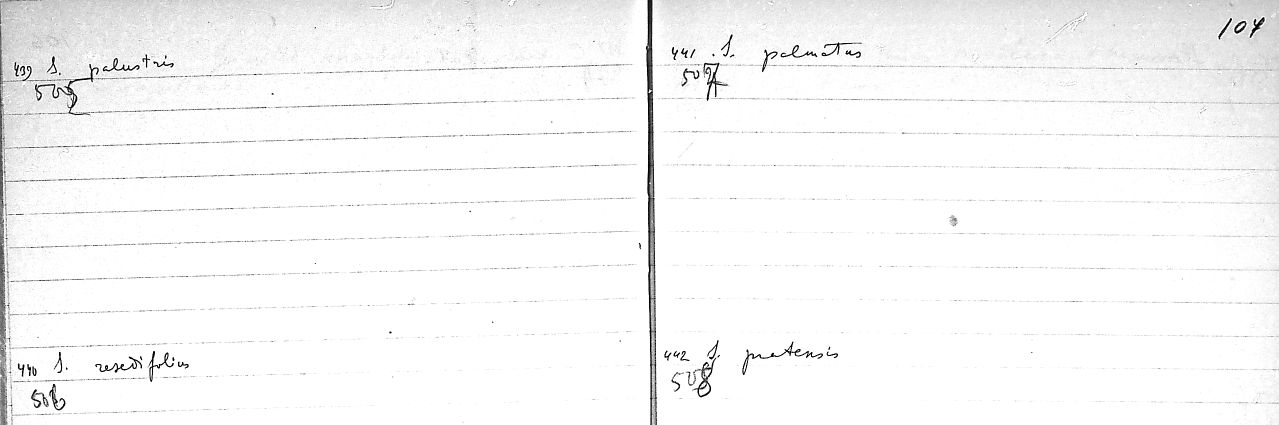 439 S. palustris
505
440 S. resedifolius
506
104
441 . S. palmatus
507
442 S. pratensis
508